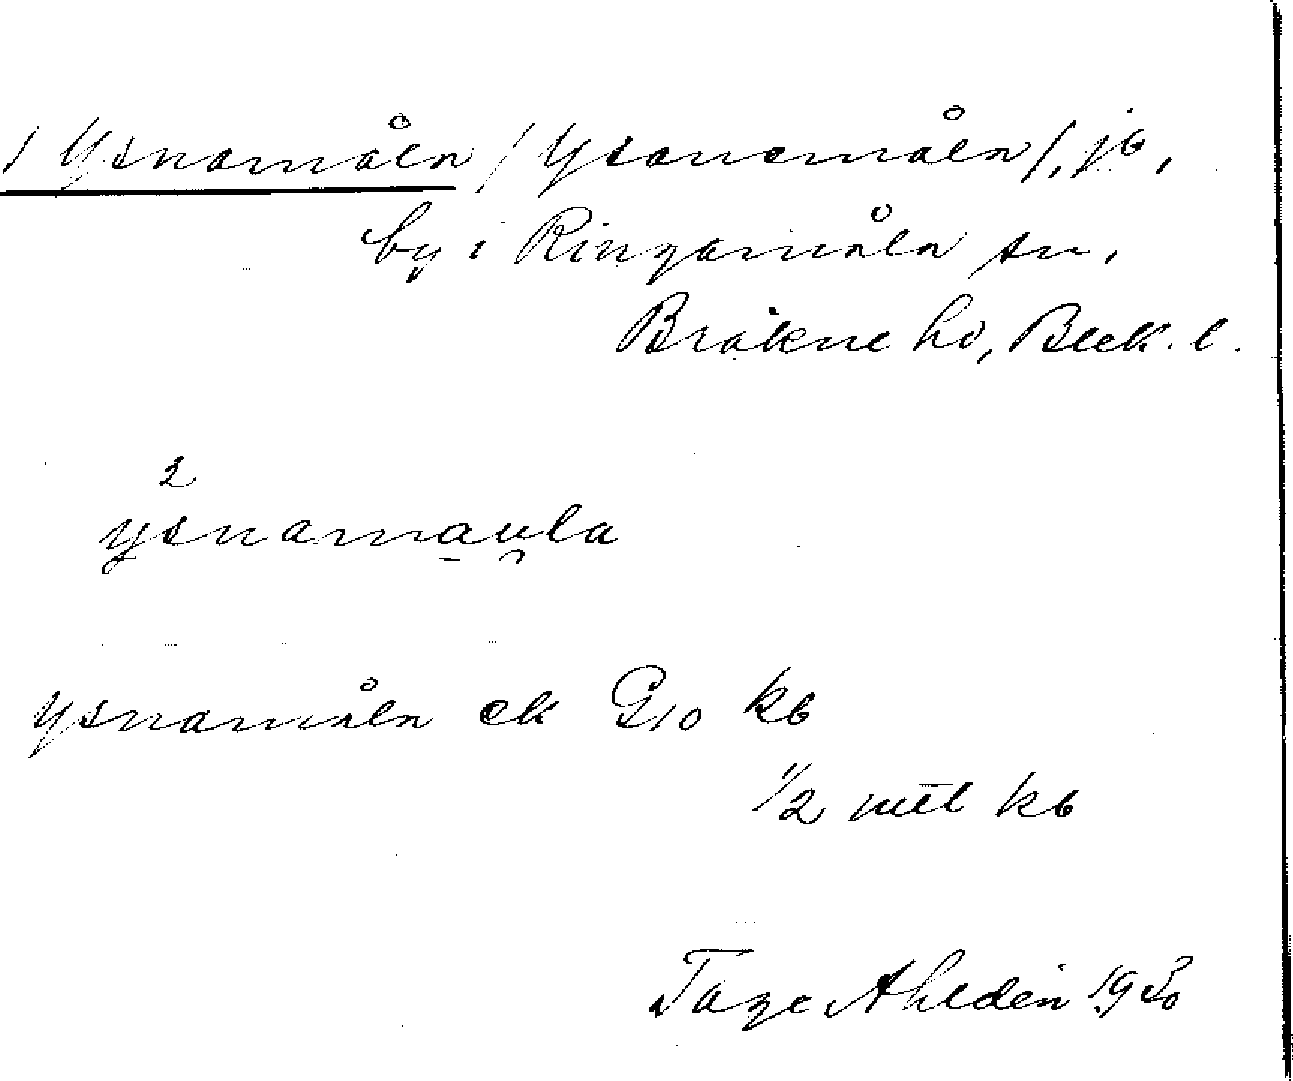 / Ysnamåln / Ysanemåln /, jb,
by i Ringamåln sn,
Bräkne hd, Blek. l.
2
ysnamaula
ysnamåln ek G10 kb
1/2 mtl kb
Tage Ahldén 1950